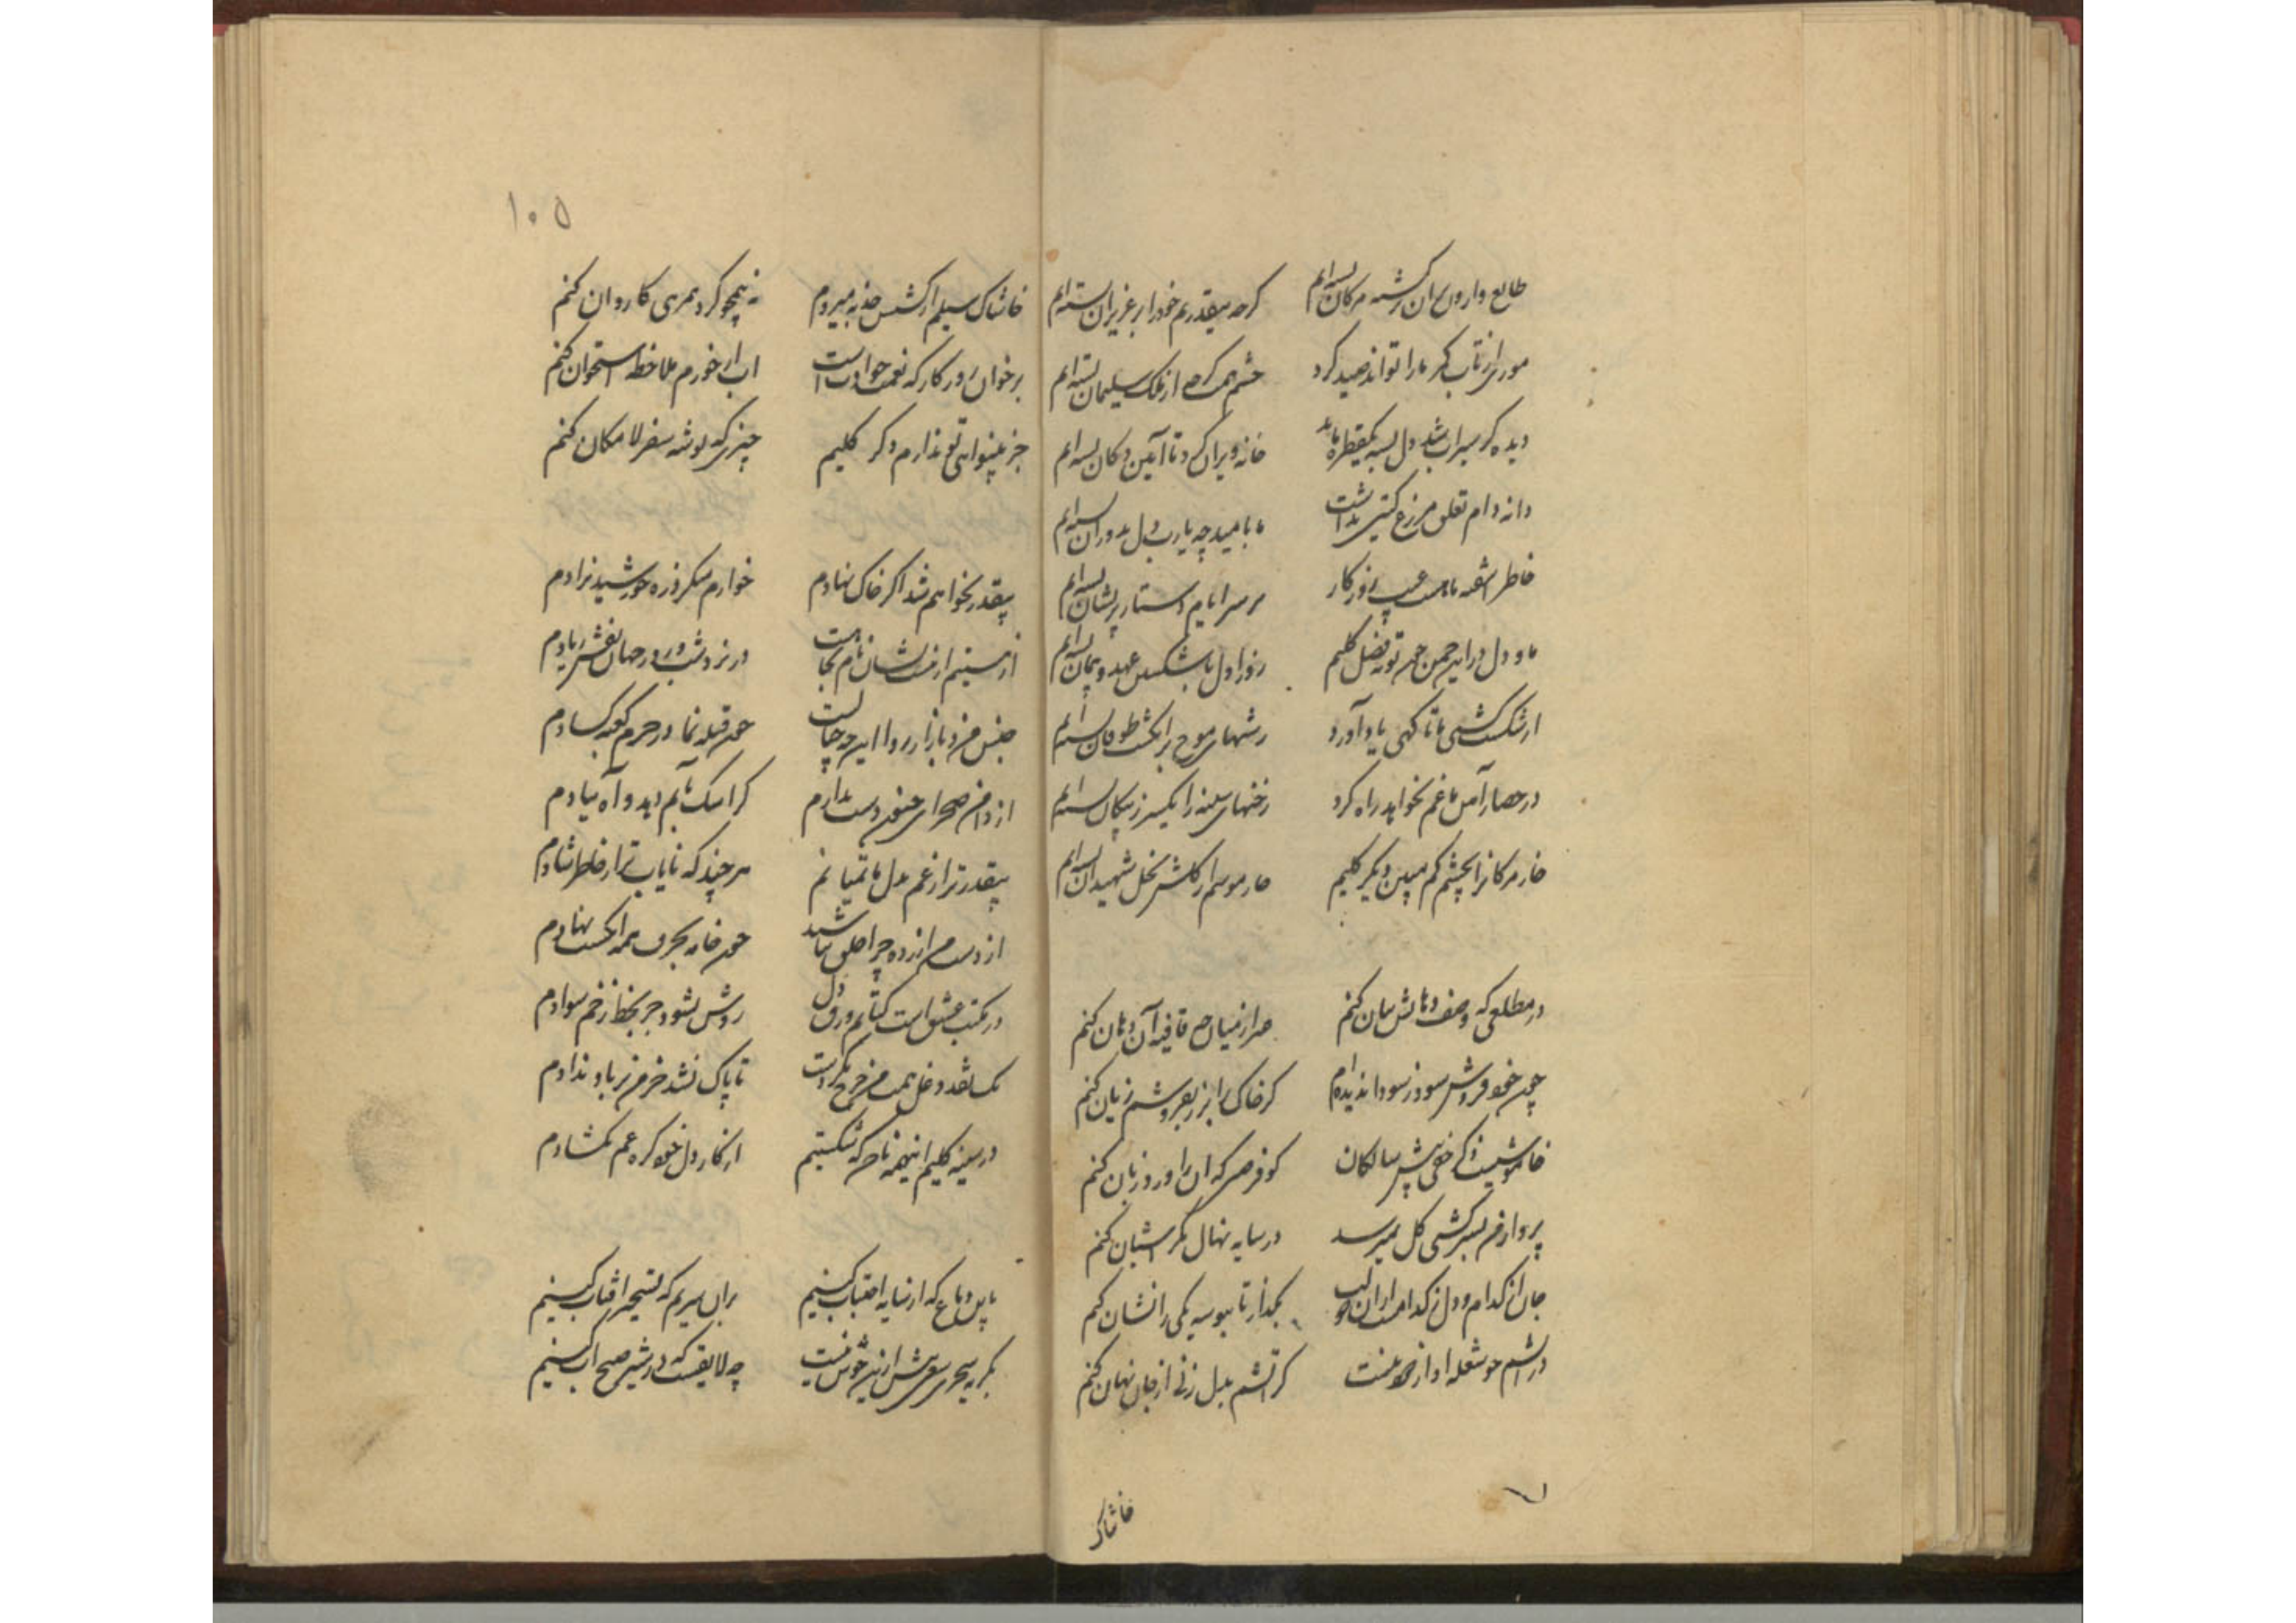 طالع وارون ان برگشته مژگان بسته‌ایم
گرچه بیقدریم خود را بر عزیزان بسته‌ایم
موری از تاب کمر ما را تواند صید کرد
چشم همت گرچه از ملک سلیمان بسته‌ایم
دیده گر سیراب شد دل بسته یکقطره ماند
خانه ویران کرد تا آیین دکان بسته‌ایم
دانه دام تعلق مزرع گیتی نداشت
ما بامید چه یارب دل بدوران بسته‌ایم
خاطر اشفته ما عیب روزگار
بر سر ایام دستار پریشان بسته‌ایم
ما و دل در این چمن
روز اول با شکستن عهد و پیمان بسته‌ایم
از شکست کشتی ما تا گهی یاد آورد
رشتهای موج بر انگشت طوفان بسته‌ایم
در حصار آهن ما غم نخواهد راه کرد
رخنهای سینه را یکسر ز پیکان بسته‌ایم
خار مژگانرا بچشم کم مبین دیگر کلیم
از گلشن نخل شهیدان بسته‌ایم
در مطلعی که وصف دهانش بیان کنم
قافیه آن دهان کنم
چون خود فروش سود ز سودا ندیده‌ام
گر خاک را بزر بفروشم زیان کنم
خاموشیست ذکر خفی پیش سالکان
کو فرصتی که ان را ورد زبان کنم
پرواز من بسرکشی گل نمیرسد
در سایه نهال مگر اشیان کنم
جان از کدام و دل ز کدامست از ان لب
بگذار تا ببوسه یکی را نشان کنم
در اتشم چو شعله
گر اتشم بدل زنی از جان نهان کنم
خاشاک
۱۰۵
خاشاک سیلم از کشش جذبه میروم
نه همچو گرد همرهی کاروان کنم
بر خوان روزگار که نعمت حوادث است
اب ار خورم ملاحظه استخوان کنم
جز بینوایی تو ندارم دگر کلیم
چیزی که توشه سفر لامکان کنم
بیقدر نخواهم شد اگر خاک نهادم
خوارم مگر ذره خورشید نژادم
از هستیم ار هست نشان نام بجا نیست
در نرد شب و روز جهان نقش زیادم
جنس من و بازار روا این چه خیالست
چون قبله نما در حرم کعبه کسادم
از دامن صحرای جنون دست ندارم
کز اشک نایم دید و آه بیادم
بیقدرتر از غم بدل ما تمیانم
هرچند که نایاب‌تر از خاطر شادم
از دست من ازرده چرا خلق نباشند
چون خامه بحرف همه انگشت نهادم
در مکتب عشق است کتابم ورق دل
روشن نشود جز بخط زخم سوادم
یک نقد دغل همت من خرج نکردست
تا پاک نشد خرمن بر باد ندادم
در سینه کلیم اینهمه ناخن که شکستیم
از کار دل خود گره غم نگشادم
ما بی دماغ که از سایه اجتناب کنیم
بران سریم که تسخیر افتاب کنیم
بگریه سحری بیش ازین خوش نیست
چه لایقست که در شیر صبح اب کنیم